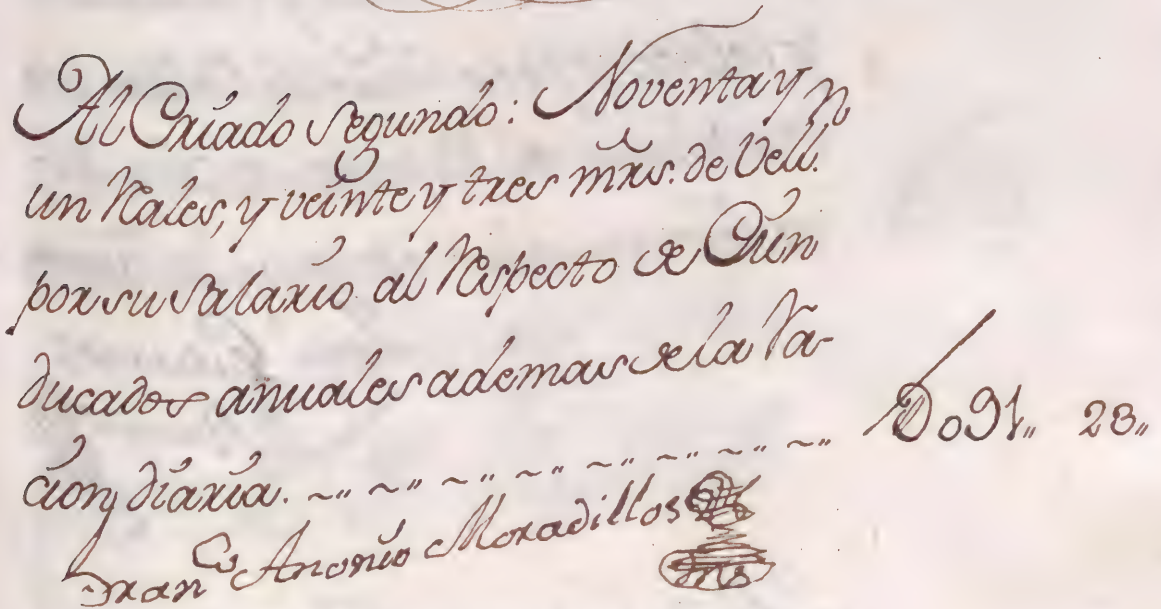 Al Criado segundo: Noventa y
un Rales, y veinte y tres mrs. de Vell.n
por su salario al Respecto de Cien
ducados anuales ademas de la Ra-
cion diaria. ~" ~" ~" ~" ~" ~" ~" ~" Do91,, 23,,
Fran.co Anonio Moradillos